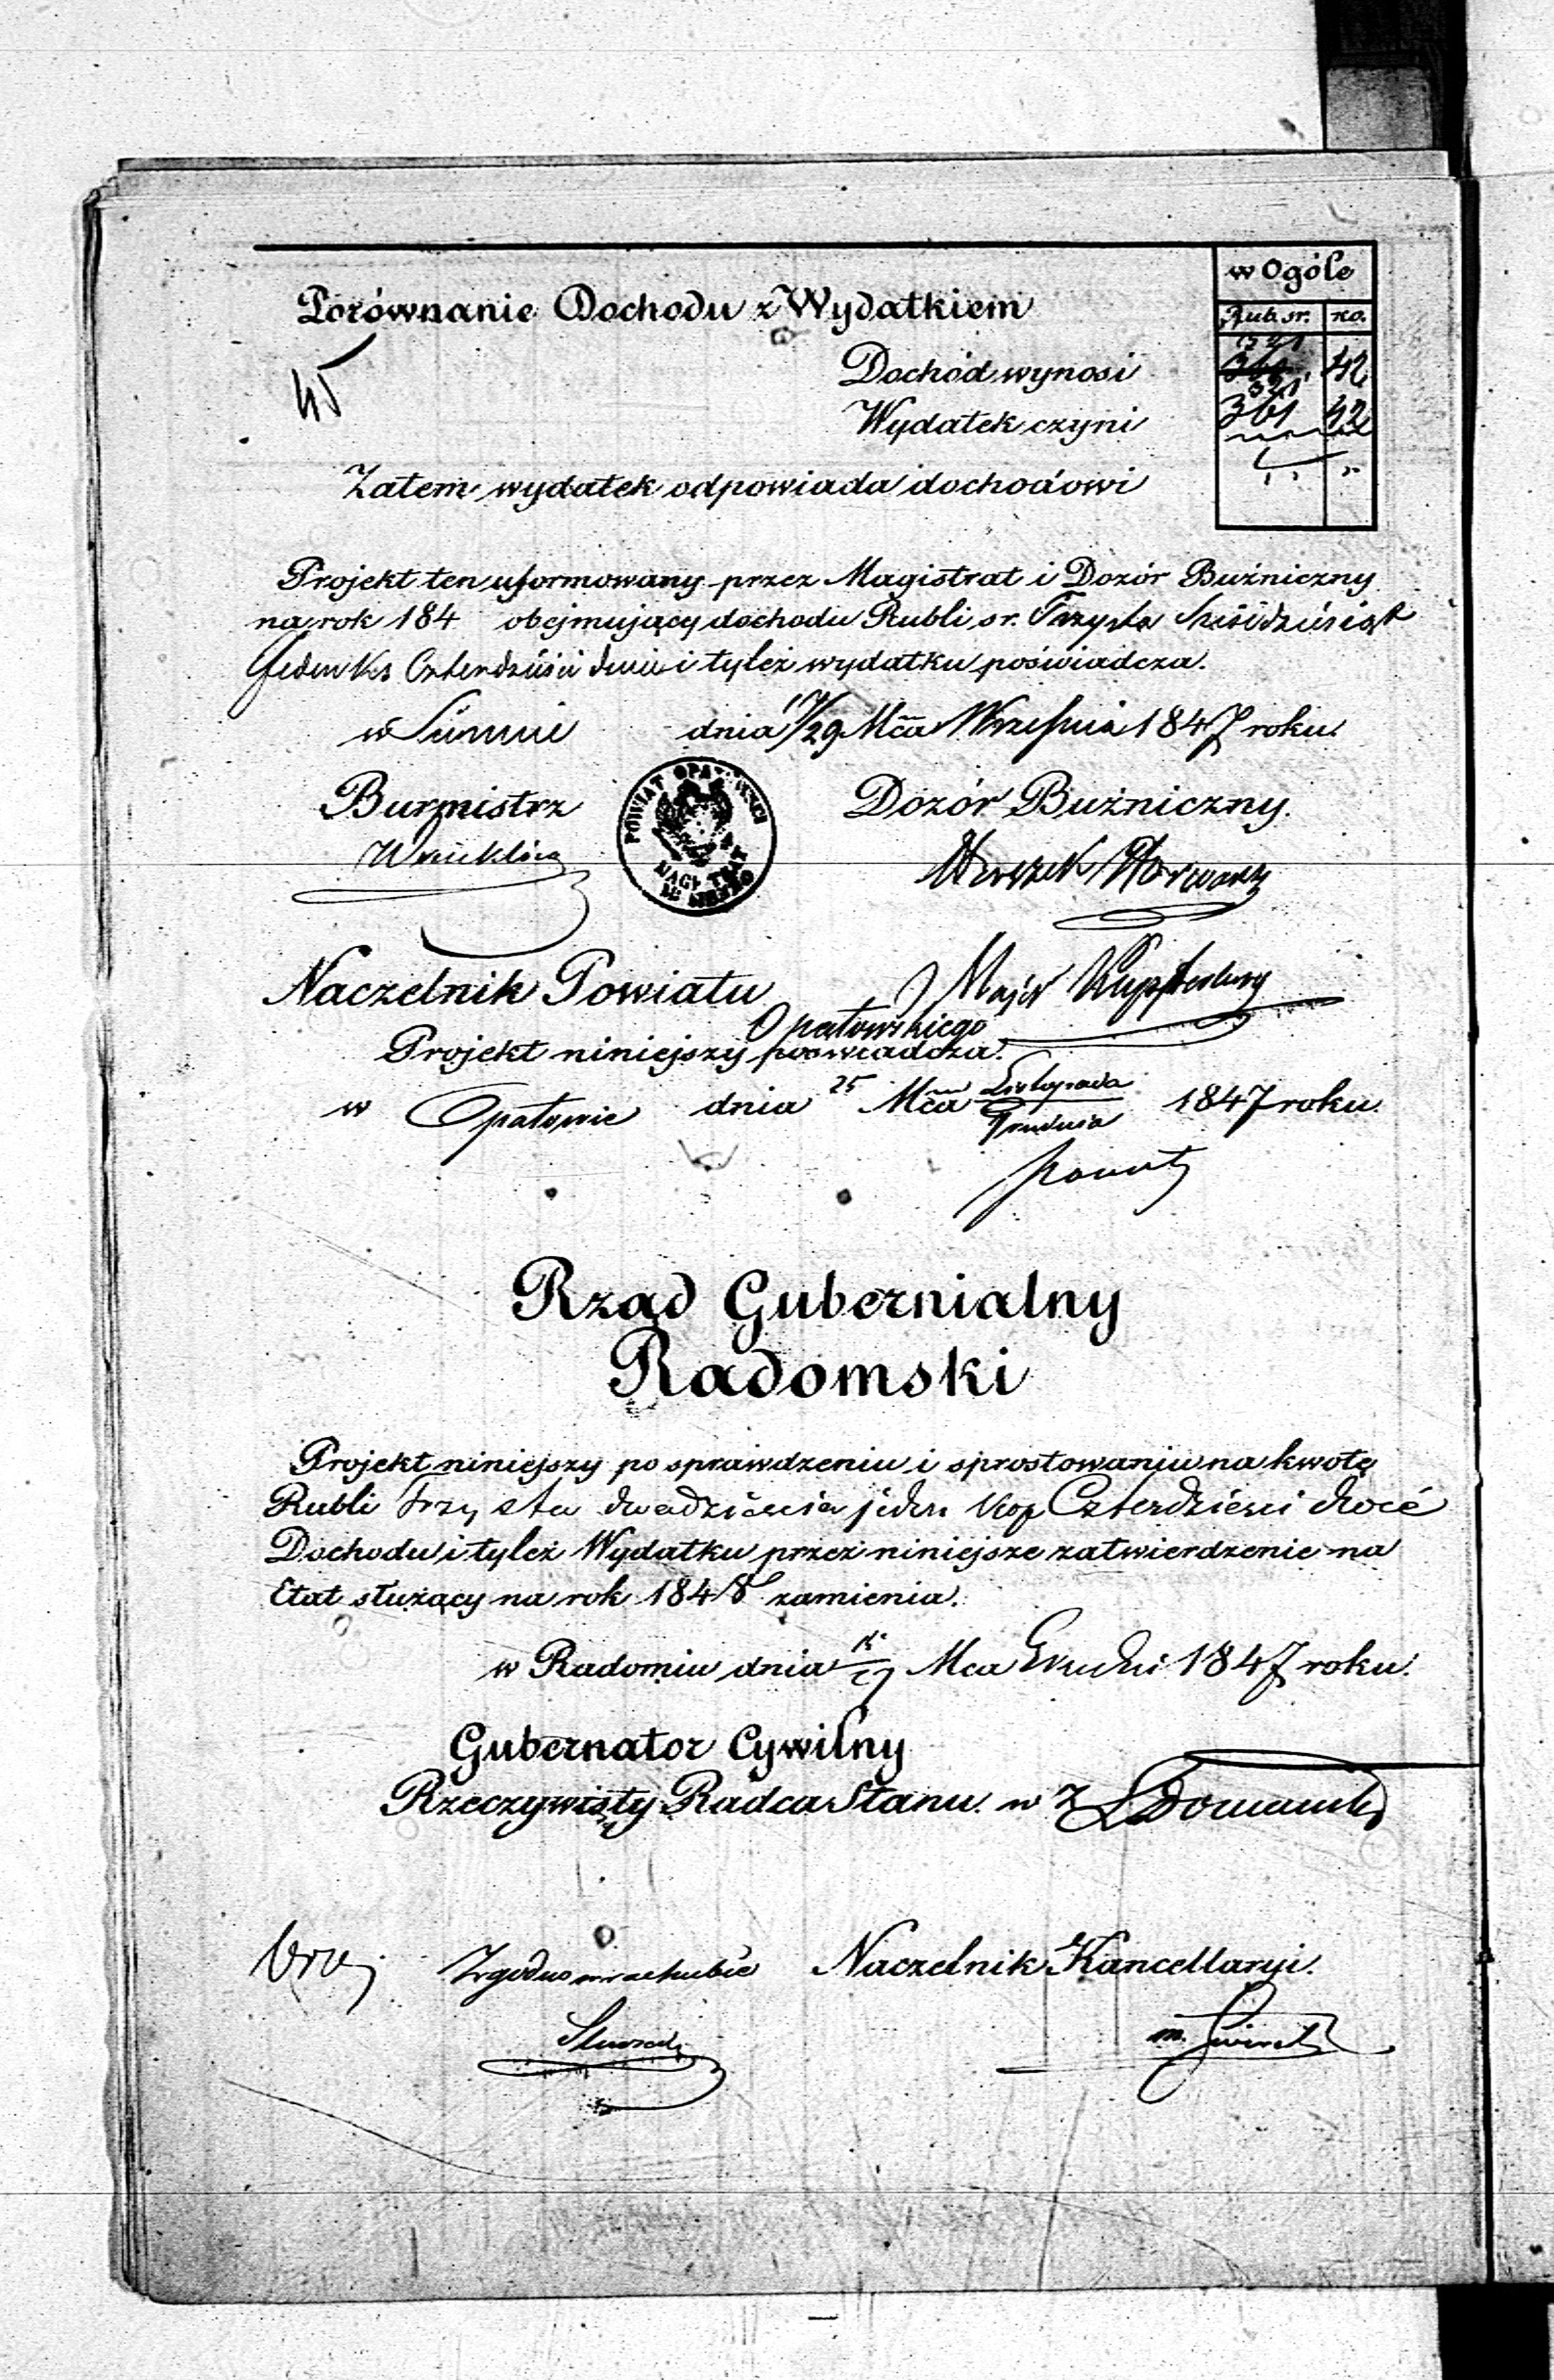 w Ogóle
Porównanie Dochodu z Wydatkiem
Rub. sr. ko.
321
Dochód wynosi 42
321
Wydatek czyni 361 42
Zatem wydatek odpowiada dochodowi
Projekt ten uformowany przez Magistrat i Dozór Bużniczny
na rok 184 obejmujący dochodu Rubli sr. Trzysta Sześćdziesiąt
Jeden Ks Czterdzieści dwie i tyleż wydatku poświadcza.
w dnia 17/29 Mca Września 1847 roku.
Burmistrz Dozór Bużniczny.
POWIAT OPATOWSKI
Naczelnik Powiatu Major
Opatowskiego
Projekt niniejszy poświadcza.
w Opatowie dnia 25 Mca Listopada 1847 roku.
Grudnia
Rząd Gubernialny
Radomski
Projekt niniejszy po sprawdzeniu i sprostowaniu na kwotę
Rubli Trzysta dwadzieścia jeden Kop Czterdzieści dwie
Dochodu i tyleż Wydatku przez niniejsze zatwierdzenie na
Etat służący na rok 1848 zamienia.
w Radomiu dnia Mca Grudni 1847 roku.
Gubernator Cywilny
Rzeczywisty Radca Stanu. w Z
Zgodno w rachubie Naczelnik Kancellaryi.